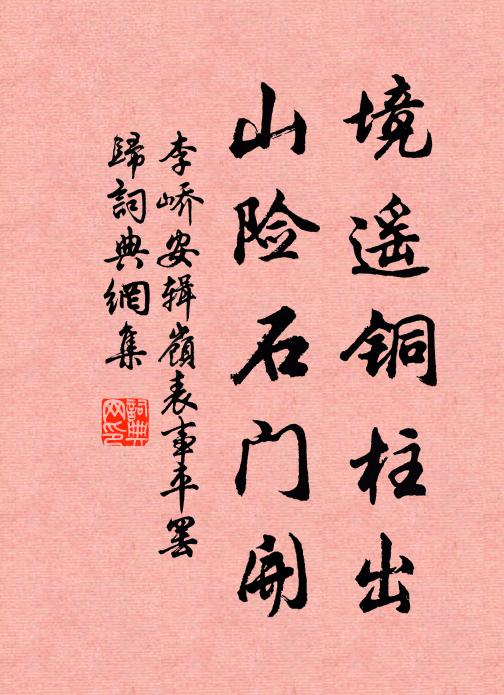 境遥铜柱出
山险石门开
李峤安辑嶺表事平罢
歸詞典網集
詞典网印